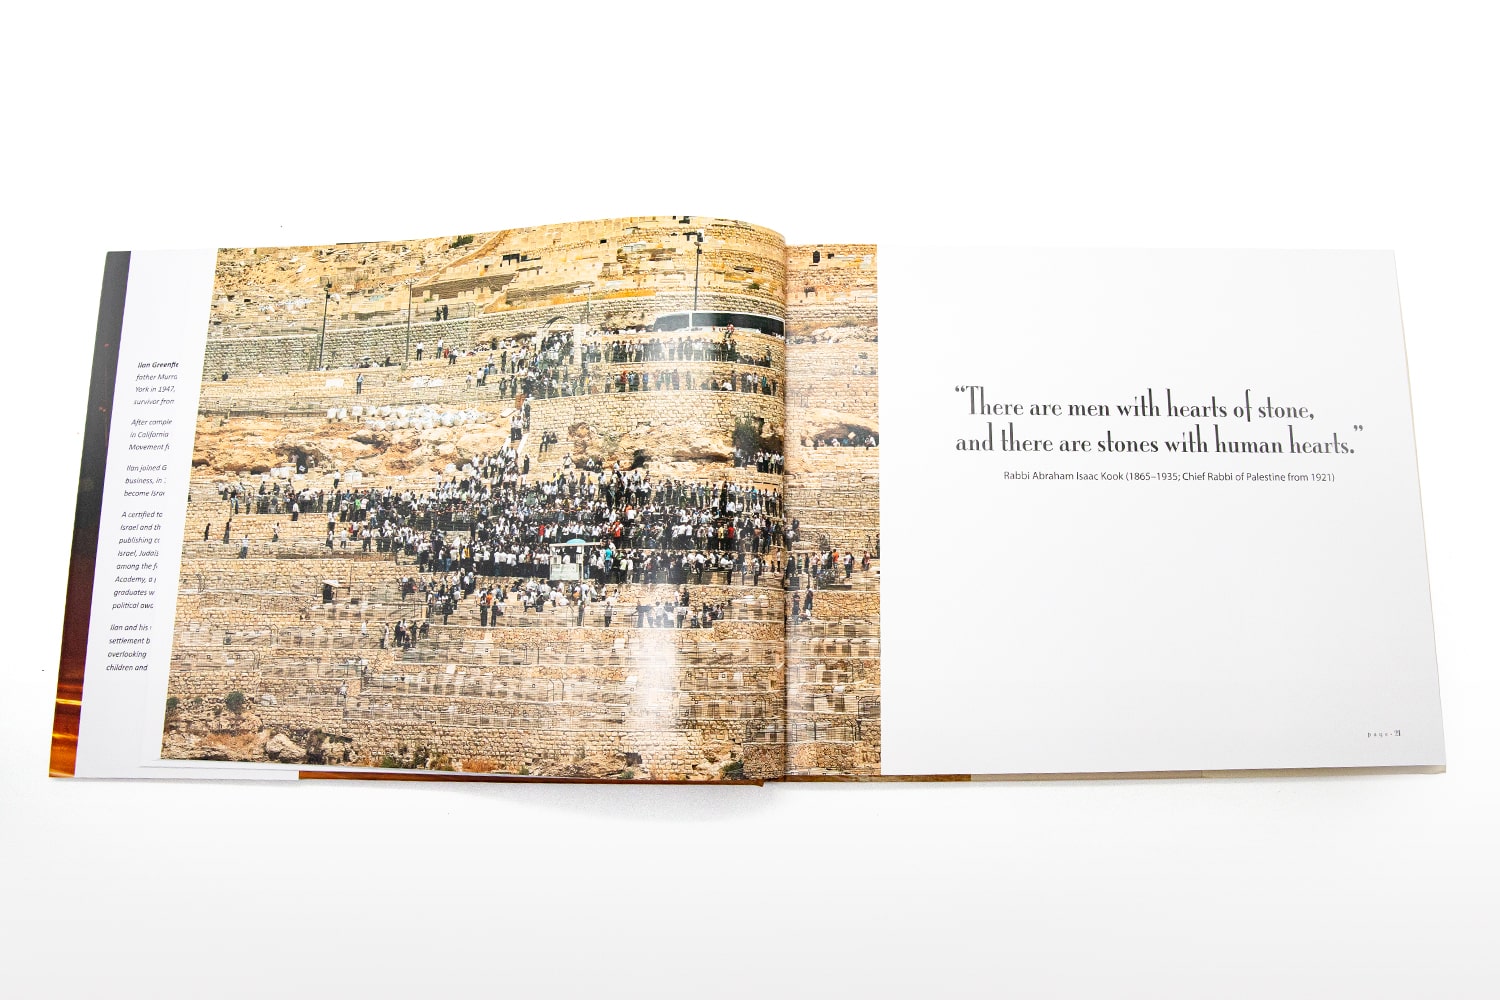 Ilan Greenfie
father Murra
York in 1947,
survivor from
After comple
in California
Movement f
Ilan joined G
business, in
become Israe
A certified to
Israel and th
publishing co
Israel, Judais
among the f
Academy, a
graduates w
political awa
Ilan and his
settlement b
overlooking
children and
“There are men with hearts of stone,
and there are stones with human hearts.”
Rabbi Abraham Isaac Kook (1865–1935; Chief Rabbi of Palestine from 1921)
page • 21